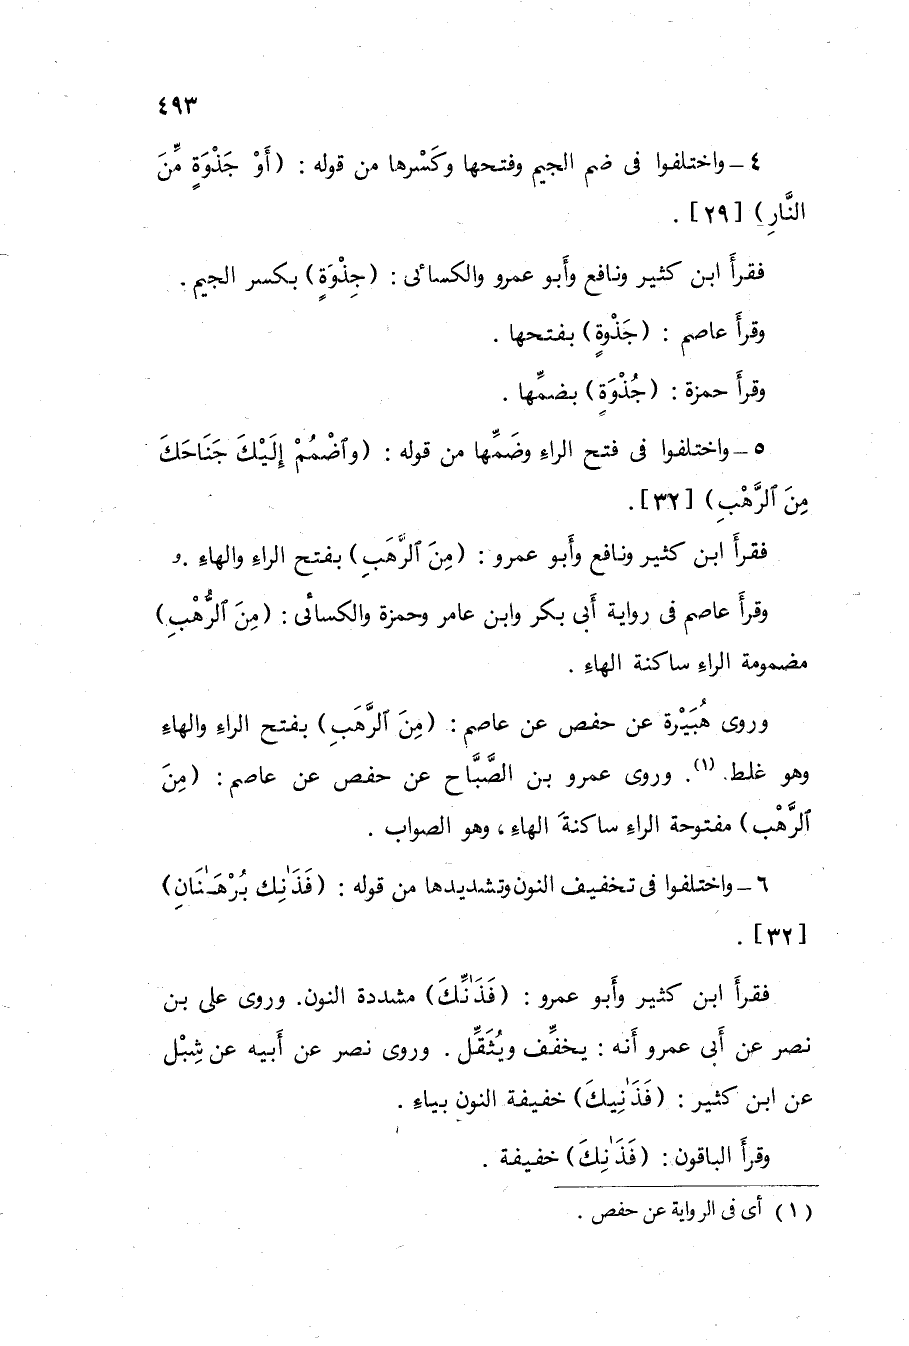 ٤٩٣
٤ ــ واختلفوا فى ضم الجيم وفتحها وكَسْرها من قوله : (أَوْ جَذْوَةٍ مِّنَ
النَّارِ) [٢٩] .
فقرأَ ابن كثير ونافع وأَبو عمرو والكسائى : (جِذْوَةٍ) بكسر الجيم .
وقرأَ عاصم : (جَذْوةٍ) بفتحها .
وقرأَ حمزة : (جُذْوَةٍ) بضمِّها .
٥ ــ واختلفوا فى فتح الراءِ وضَمِّها من قوله : (وٱضْمُمْ إِلَيْكَ جَنَاحَكَ
مِنَ ٱلرَّهْبِ) [٣٢] .
فقرأَ ابن كثير ونافع وأَبو عمرو : (مِنَ ٱلرَّهَبِ) بفتح الراءِ والهاءِ .
وقرأَ عاصم فى رواية أَبى بكر وابن عامر وحمزة والكسائى : (مِنَ ٱلرُّهْبِ)
مضمومة الراءِ ساكنة الهاءِ .
وروى هُبَيْرة عن حفص عن عاصم : (مِنَ ٱلرَّهَبِ) بفتح الراءِ والهاءِ
وهو غلط (١). وروى عمرو بن الصَّبَّاح عن حفص عن عاصم : (مِنَ
ٱلرَّهْبِ) مفتوحة الراءِ ساكنةَ الهاءِ ، وهو الصواب .
٦ ــ واختلفوا فى تخفيف النون وتشديدها من قوله : (فَذَٰنِكَ بُرْهَـٰنَانِ)
[٣٢] .
فقرأَ ابن كثير وأَبو عمرو : (فَذَٰنِّكَ) مشددة النون. وروى على بن
نصر عن أَبى عمرو أَنه : يخفِّف ويُثَقِّل . وروى نصر عن أَبيه عن شِبْل
عن ابن كثير : (فَذَٰنِيكَ) خفيفة النون بياءِ .
وقرأَ الباقون : (فَذَٰنِكَ) خفيفة .
(١) أى فى الرواية عن حفص .